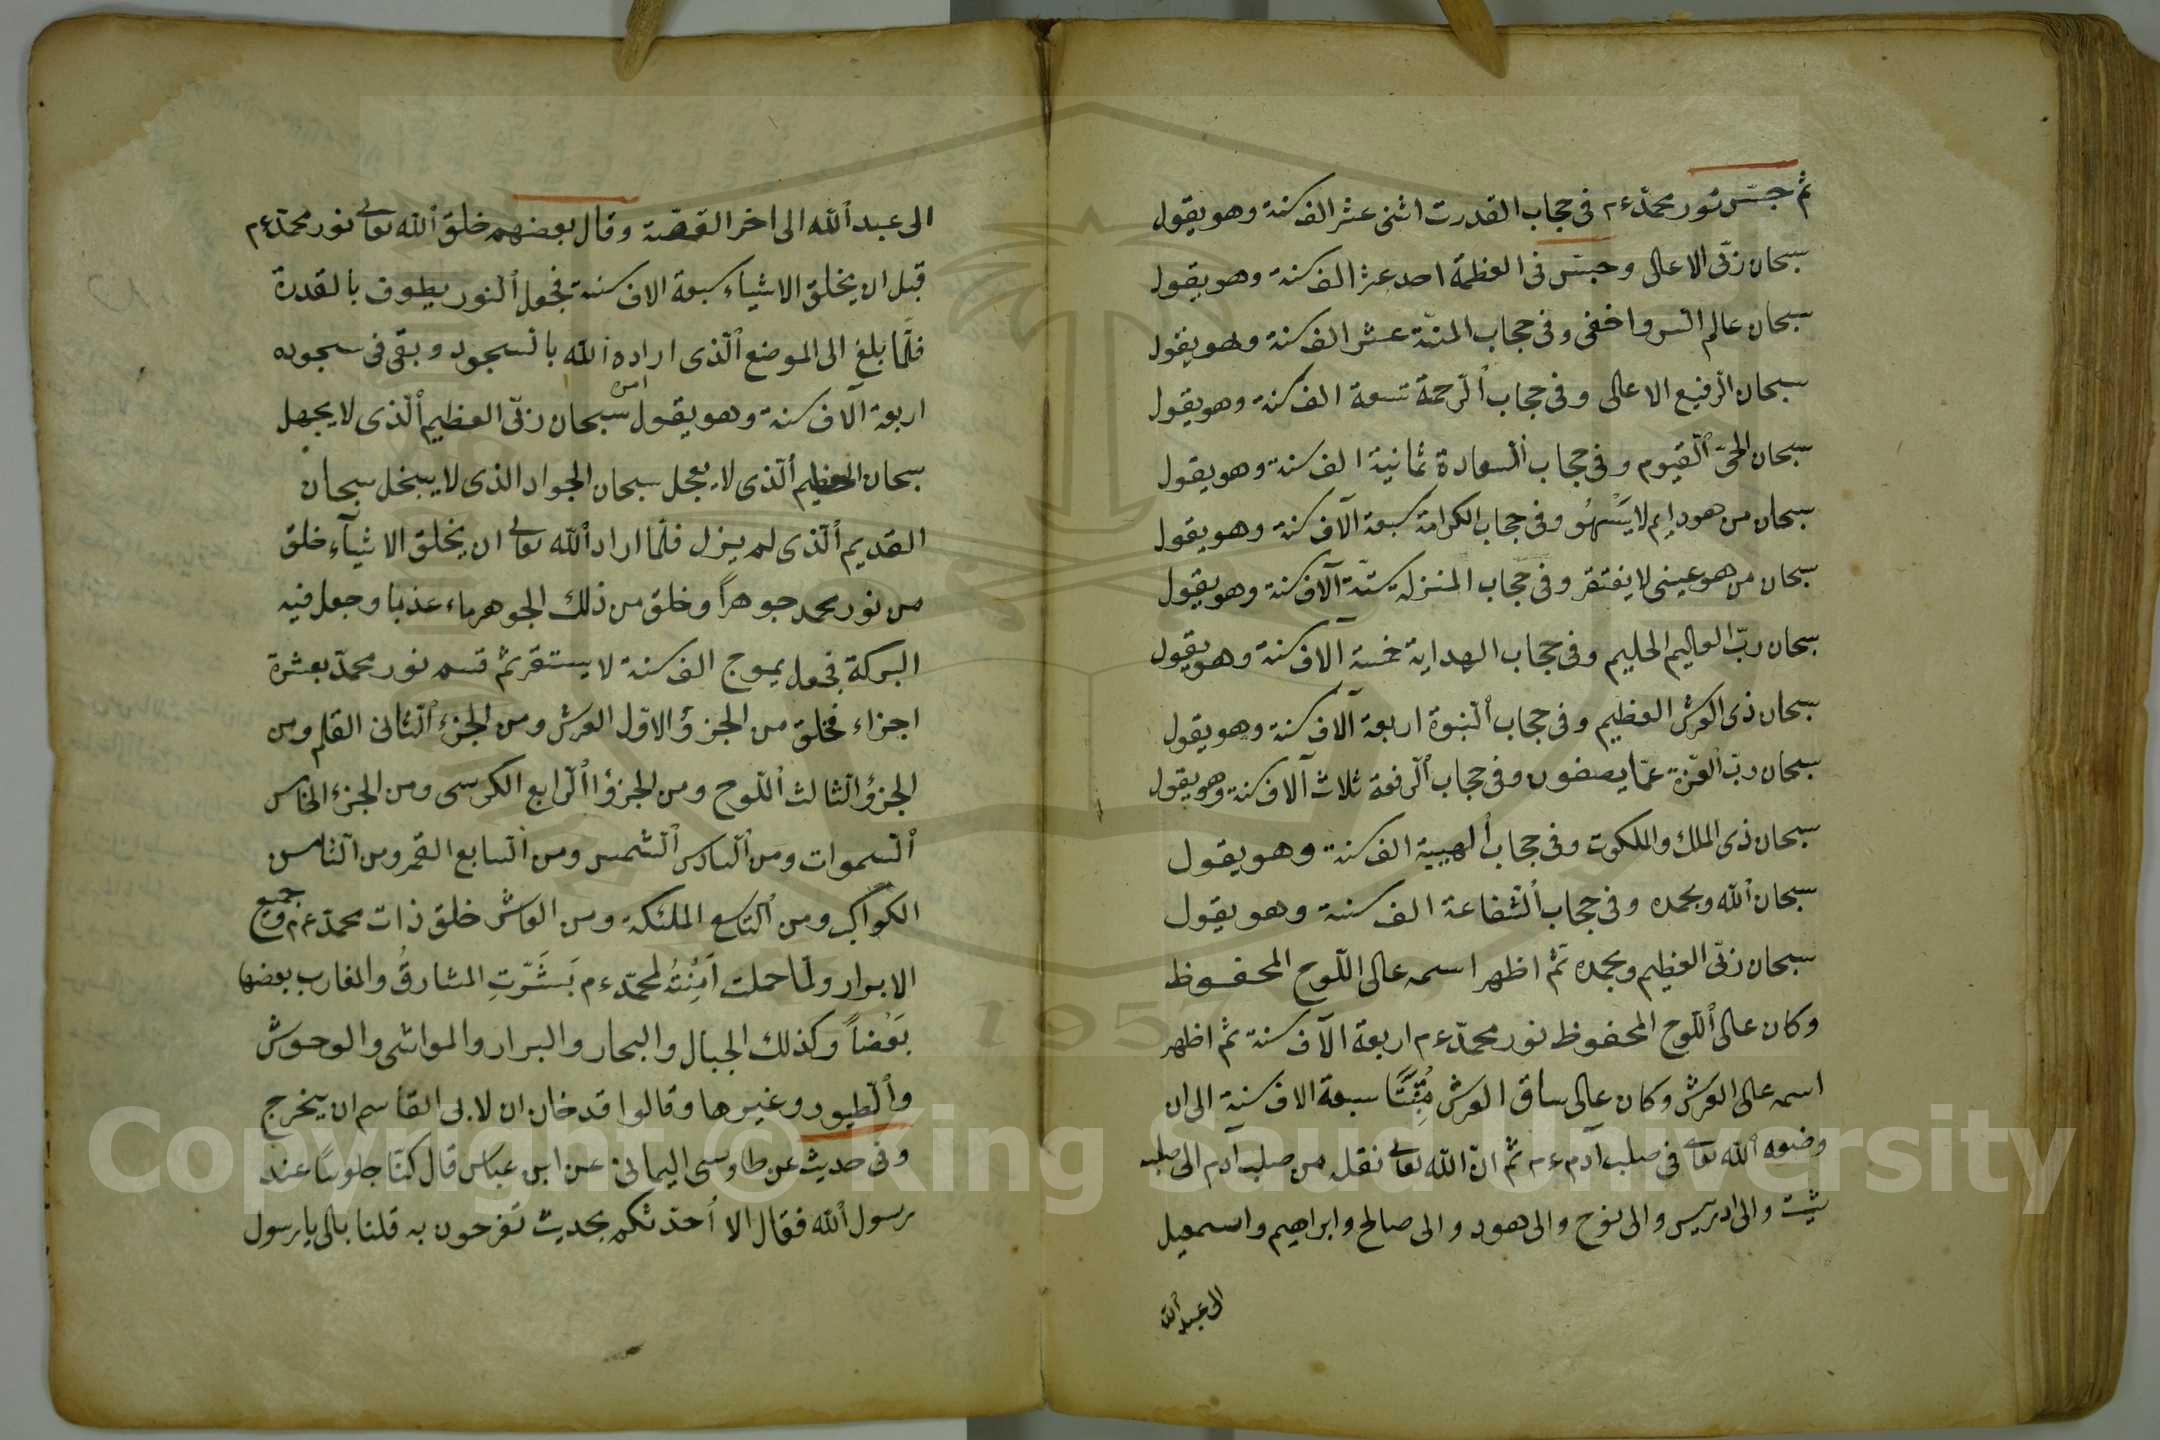 ثم حبس نور محمدءم فى حجاب القدرت اثنى عشر الف سنة وهو يقول
سبحان ربّى الاعالى وحبس فى العظمة احد عشر الف سنة وهو يقول
سبحان عالم السر واخفى وفى حجاب المنّة عشر الف سنة وهو يقول
سبحان الرفيع الاعالى وفى حجاب الرّحمة تسعة الف سنة وهو يقول
سبحان الحىّ القيوم وفى حجاب السعادة ثمانية الف سنة وهو يقول
سبحان من هو دايم لا يَسْهُو وفى حجاب الكرامة سبعة آلاف سنة وهو يقول
سبحان من هو عينى لا يفتقر وفى حجاب المنزلة ستّة آلاف سنة وهو يقول
سبحان ربّ العاليم الحليم وفى حجاب الهداية خمسة آلاف سنة وهو يقول
سبحان ذى العرش العظيم وفى حجاب النبوة اربعة آلاف سنة وهو يقول
سبحان ربّ العزّة عمّا يصفون وفى حجاب الرفعة ثلاث آلاف سنة وهو يقول
سبحان ذى الملك والملكوت وفى حجاب الهيبة الف سنة وهو يقول
سبحان الله وبحمده وفى حجاب الشفاعة الف سنة وهو يقول
سبحان ربّى العظيم وبحمده ثمّ اظهر اسمه عالى اللّوح المحفوظ
وكان عالى اللّوح المحفوظ نور محمّدءم اربعة آلاف سنة ثم اظهر
اسمه عالى العرش وكان عالى ساق العرش مثبتًا سبعة الاف سنة الى ان
وضعه الله تعالى فى صلب آدمءم ثم انّ الله تعالى نقله من صلب آدم الى صلب
شيث والى ادريس والى نوح والى هود والى صالح وابراهيم واسمعيل
الى عبد الله
الى عبد الله الى اخر القصّة وقال بعضهم خلق الله تعالى نور محمّدءم
قبل ان يخلق الاشياء سبعة الاف سنة فجعل النور يطوف بالقدرة
فلمّا بلغ الى الموضع الّذى اراده الله بالسجود وبقى فى سجوده
امره
اربعة آلاف سنة وهو يقول سبحان ربّى العظيم الّذى لا يجهل
سبحان العظيم الّذى لا يعجل سبحان الجواد الذى لا يبخل سبحان
القديم الّذى لم يزل فلمّا اراد الله تعالى ان يخلق الاشيآء خلق
من نور محمد جوهراً وخلق من ذلك الجوهر ماء عذبا وجعل فيه
البركة فجعل يموج الف سنة لا يستقر ثم قسم نور محمدّ بعشرة
اجزاء فخلق من الجزؤ الاوّل العرش ومن الجزء الثانى القلم ومن
الجزؤ الثالث اللّوح ومن الجزؤ الرّابع الكرسى ومن الجزء الخامس
السموات ومن السادس الشمس ومن السابع القمر ومن الثامن
الكواكب ومن التاسع الملئكة ومن العاشر خلق ذات محمدّءم وجميع
الابرار ولمّا حملت اٰمِنَتُه لمحمّدءم بَشَّرَتِ المشارقُ والمغارب بعضها
بَعْضاً وكذلك الجبال والبحار والبرار والمواشى والوحوش
والطيور وغيرها وقالوا قد خان ان لابى القاسم ان يخرج
وفى حديث عن طاوسى اليمانى عن ابن عباس قال كنّا جلوسًا عند
رسول الله فقال الا اُحدّثكم بحديث تفرحون به قلنا بالى يا رسول
1957
Copyright © King Saud University